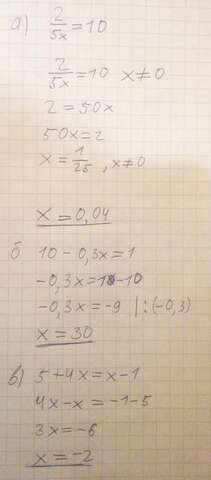 а) 2/5x = 10
2/5x = 10 x ≠ 0
2 = 50x
50x = 2
x = 1/25, x ≠ 0
x = 0,04
б 10 - 0,3x = 1
-0,3x = 1-10
-0,3x = -9 |:(-0,3)
x = 30
в) 5 + 4x = x - 1
4x - x = -1 - 5
3x = -6
x = -2